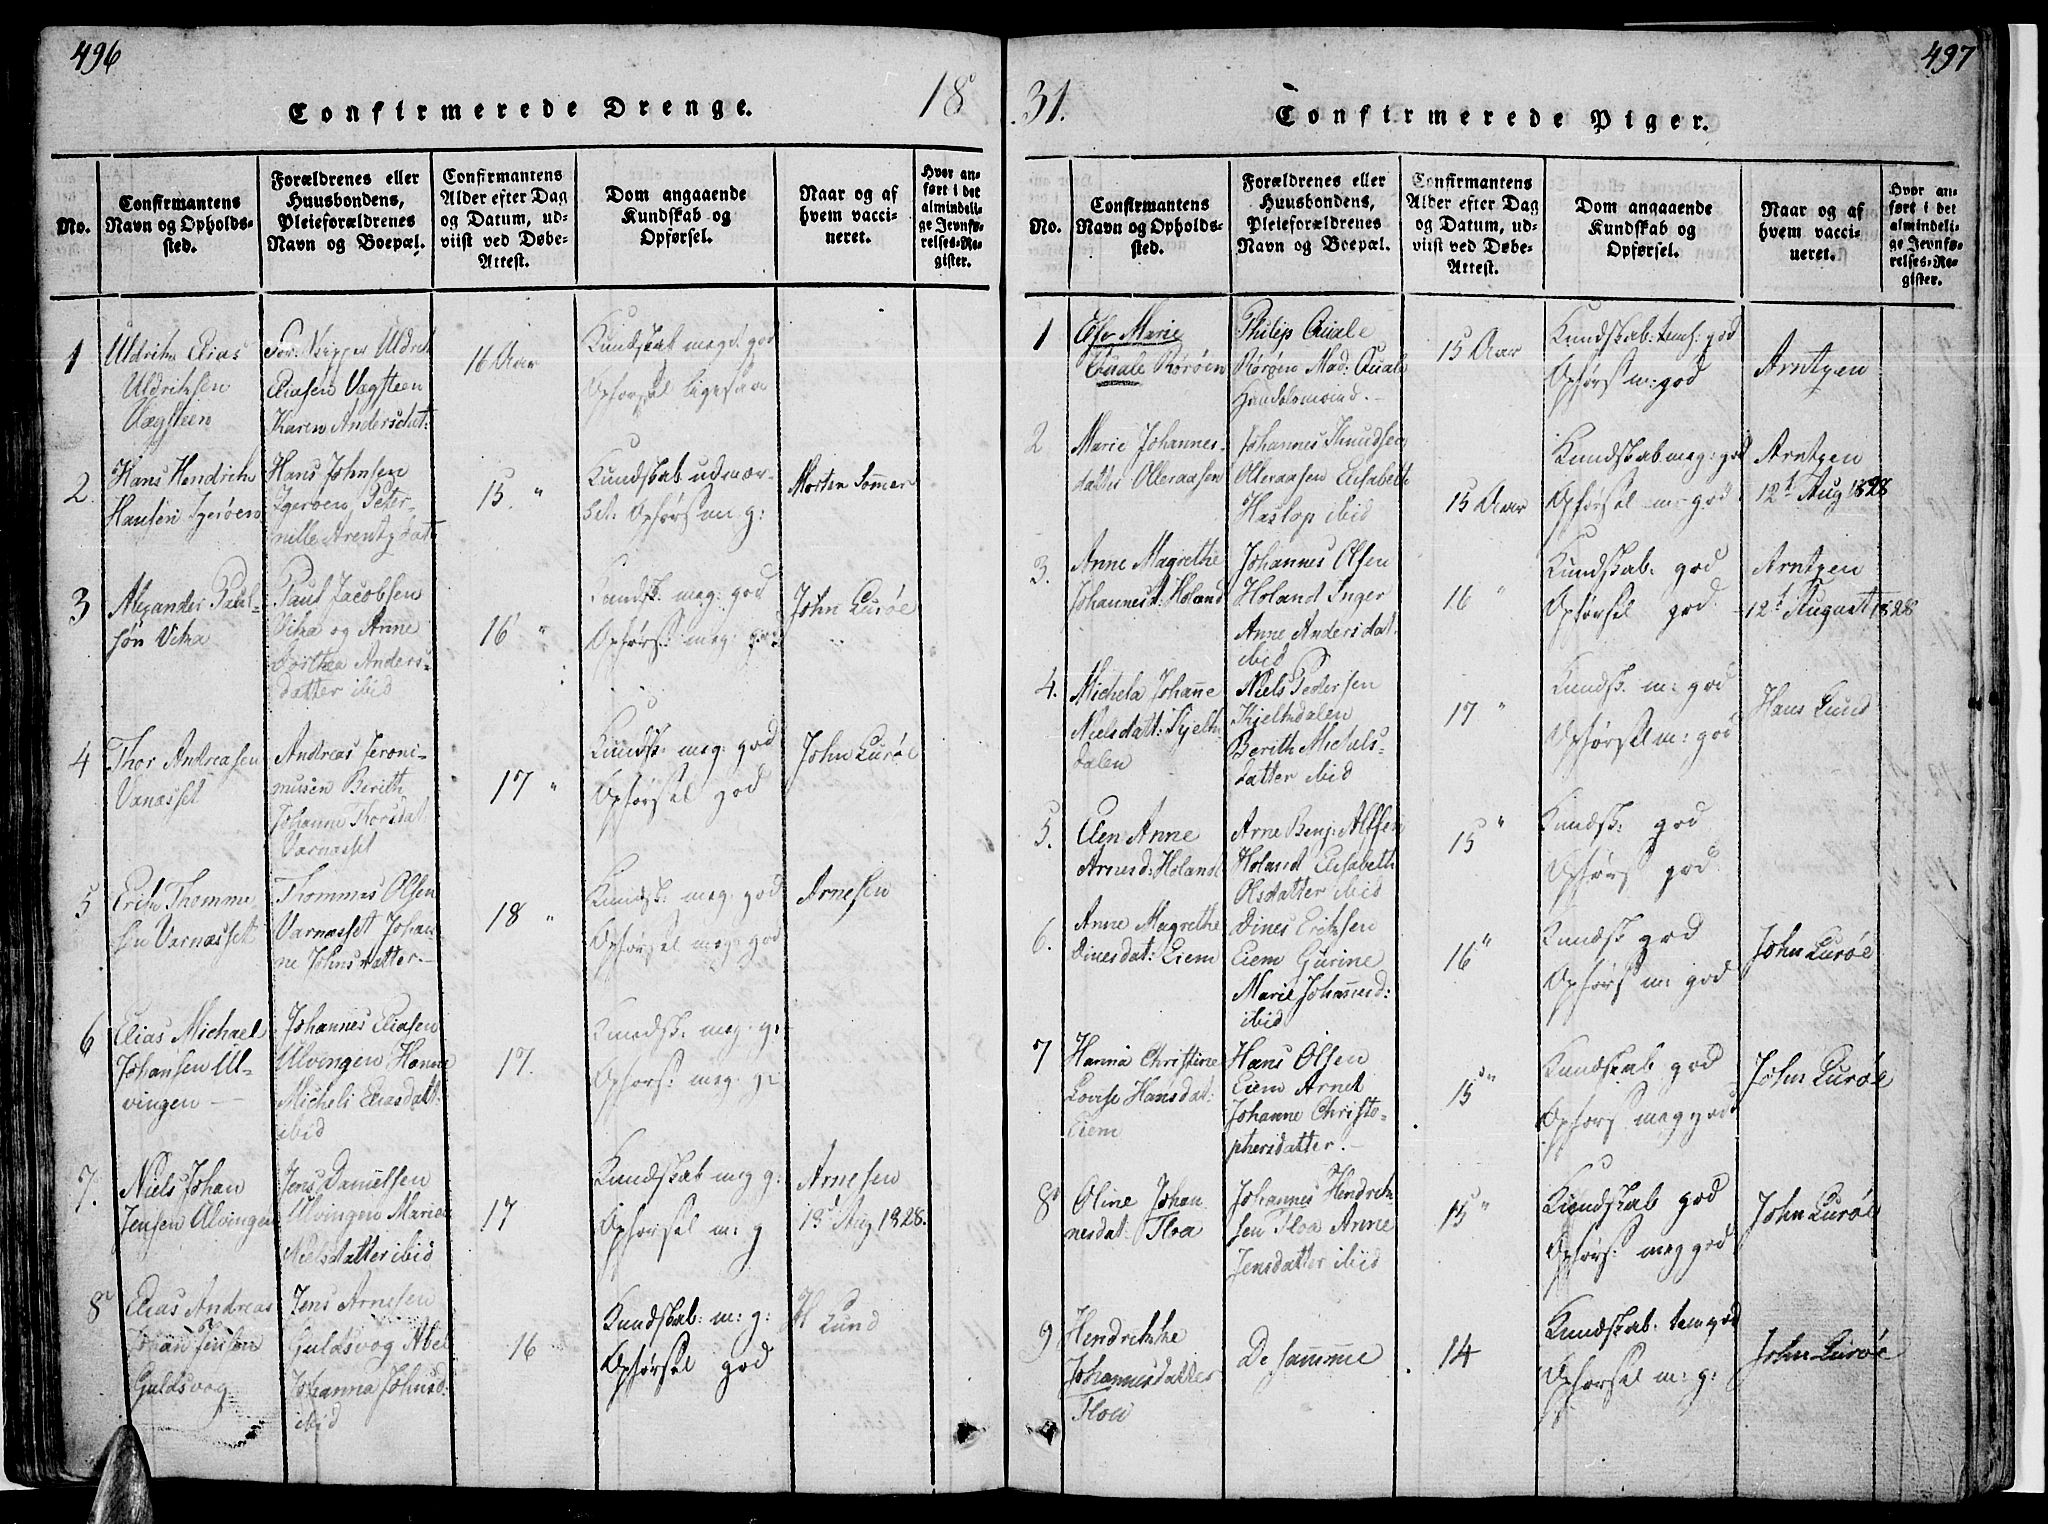 496
Confirmerede Drenge.
18
No.
Confirmantens
Navn og Opholds-
sted.
Forældrenes eller
Huusbondens,
Pleieforældrenes
Navn og Boepæl.
Confirmantens
Alder efter Dag
og Datum, ud-
viist ved Døbe-
Attest.
Dom angaaende
Kundskab og
Opførsel.
Naar og af
hvem vacci-
neret.
Hvor an-
ført i det
almindeli-
ge Jevnfø-
relses-Re-
gister.
1
Uldrikn Elias
Uldriksen
Vægsteen
Uldrik
Eliasen Vægsteen
Karen Andersdat:
16 Aar
Kundskab meg: god
Opførsel ligesaa
2.
Hans Hendrikn
Hansen Igerøen
Hans Johnsen
Igerøen Peter-
nille Arentzdat
15. "
Kundskab udmær-
Opførs m: g:
Morten Sommer
3
Alexander Paul-
søn Vikna
Paul Jacobsen
Vikna og Anne
Dorthea Anders-
datter ibid
16 "
Kundsk: meg: god
Opførs: meg: god
John Lurøe
4
Thor Andreasen
Varnæsset
Andreas Jeroni-
musen Berith
Johanne Thorsdat
Varnæsset
17 "
Kundsk: meg: god
Opførsel god
John Lurøe
5
Erik Thomme
sen Varnæsset
Thommes Olsen
Varnæsset Johan-
ne Johnsdatter.-
18 "
Kundsk: meg: god
Opførsel meg: god
Arnesen
6
Elias Michael
Johansen Ul-
vingen -
Johannes Eliasen
Ulvingen Hanne
Micheli Eliasdatt:
ibid
17.
Kundsk: meg: g:
Opførs: meg: g:
7.
Niels Johan
Jensen Ulvingen
Jens Danielsen
Ulvingen Maren
Nielsdatter ibid
17
Kundskab meg g:
Opførsel m: g
Arnesen
13 Aug 1828.
8
Elias Andreas
Johan Jensen
Guldsvog
Jens Arnesen
Guldsvog Abel
Johanna Johnsd:
ibid
16
Kundskab: m: g:
Opførsel god
H Lund
497
31.
Confirmerede Piger.
No.
Confirmantens
Navn og Opholds-
sted.
Forældrenes eller
Huusbondens,
Pleieforældrenes
Navn og Boepæl.
Confirmantens
Alder efter Dag
og Datum, ud-
viist ved Døbe-
Attest.
Dom angaaende
Kundskab og
Opførsel.
Naar og af
hvem vacci-
neret.
Hvor an-
ført i det
almindeli-
ge Jevnfø-
relses-Re-
gister.
1
Marie
Quale Rørøen
Philip Quale
Rørøen Mad: Quale
Handelsmand.-
15 Aar
Kundskab: tem: god
Opførs m: god
Arntzen
2
Marie Johannes-
datter Olleraasen
Johannes Knudsen
Olleraasen Elisabeth
Haslop ibid
15 Aar
Kundskab meg: god
Opførsel m: god
Arntzen
12t Aug 1828
3.
Anne Magrethe
Johannesd: Holand
Johannes Olsen
Holand Inger
Anne Andersdat.
ibid
16 "
Kundskab: god
Opførsel god
Arntzen
12t August 1828
4.
Michela Johanne
Nielsdatt: Kjeltn
dalen
Niels Pedersen
Kjeltndalen
Berith Michels-
datter ibid
17 "
Kundsk: m: god
Opførsel m: god
Hans Lund
5.
Elen Anne
Arnesd: Holand
Arne Benj: Alffen
Holand Elisabeth
Olsdatter ibid
15 "
Kundsk: god
Opførs god
6.
Anne Magrethe
Dinesdat: Eiem
Dines Eriksen
Eiem Gurine
Marie Johannesd:
ibid
16 "
Kundsk god
Opførs m: god
John Lurøe
7
Hanna Christine
Lovise Hansdat:
Eiem
Hans Olsen
Eiem Arnet
Johanne Christo-
phersdatter.-
15 "
Kundskab god
Opførs meg god
John Lurøe
8
Oline Johan
nesdat: Floa
Johannes Hendrik-
sen Floa Anne
Jensdatter ibid
15 "
Kundskab god
Opførs: meg god
John Lurøe
9
Hendrikke
Johannesdatter
Floa
De samme
14
Kundskab: tem god
Opførsel m: g:
John Lurøe